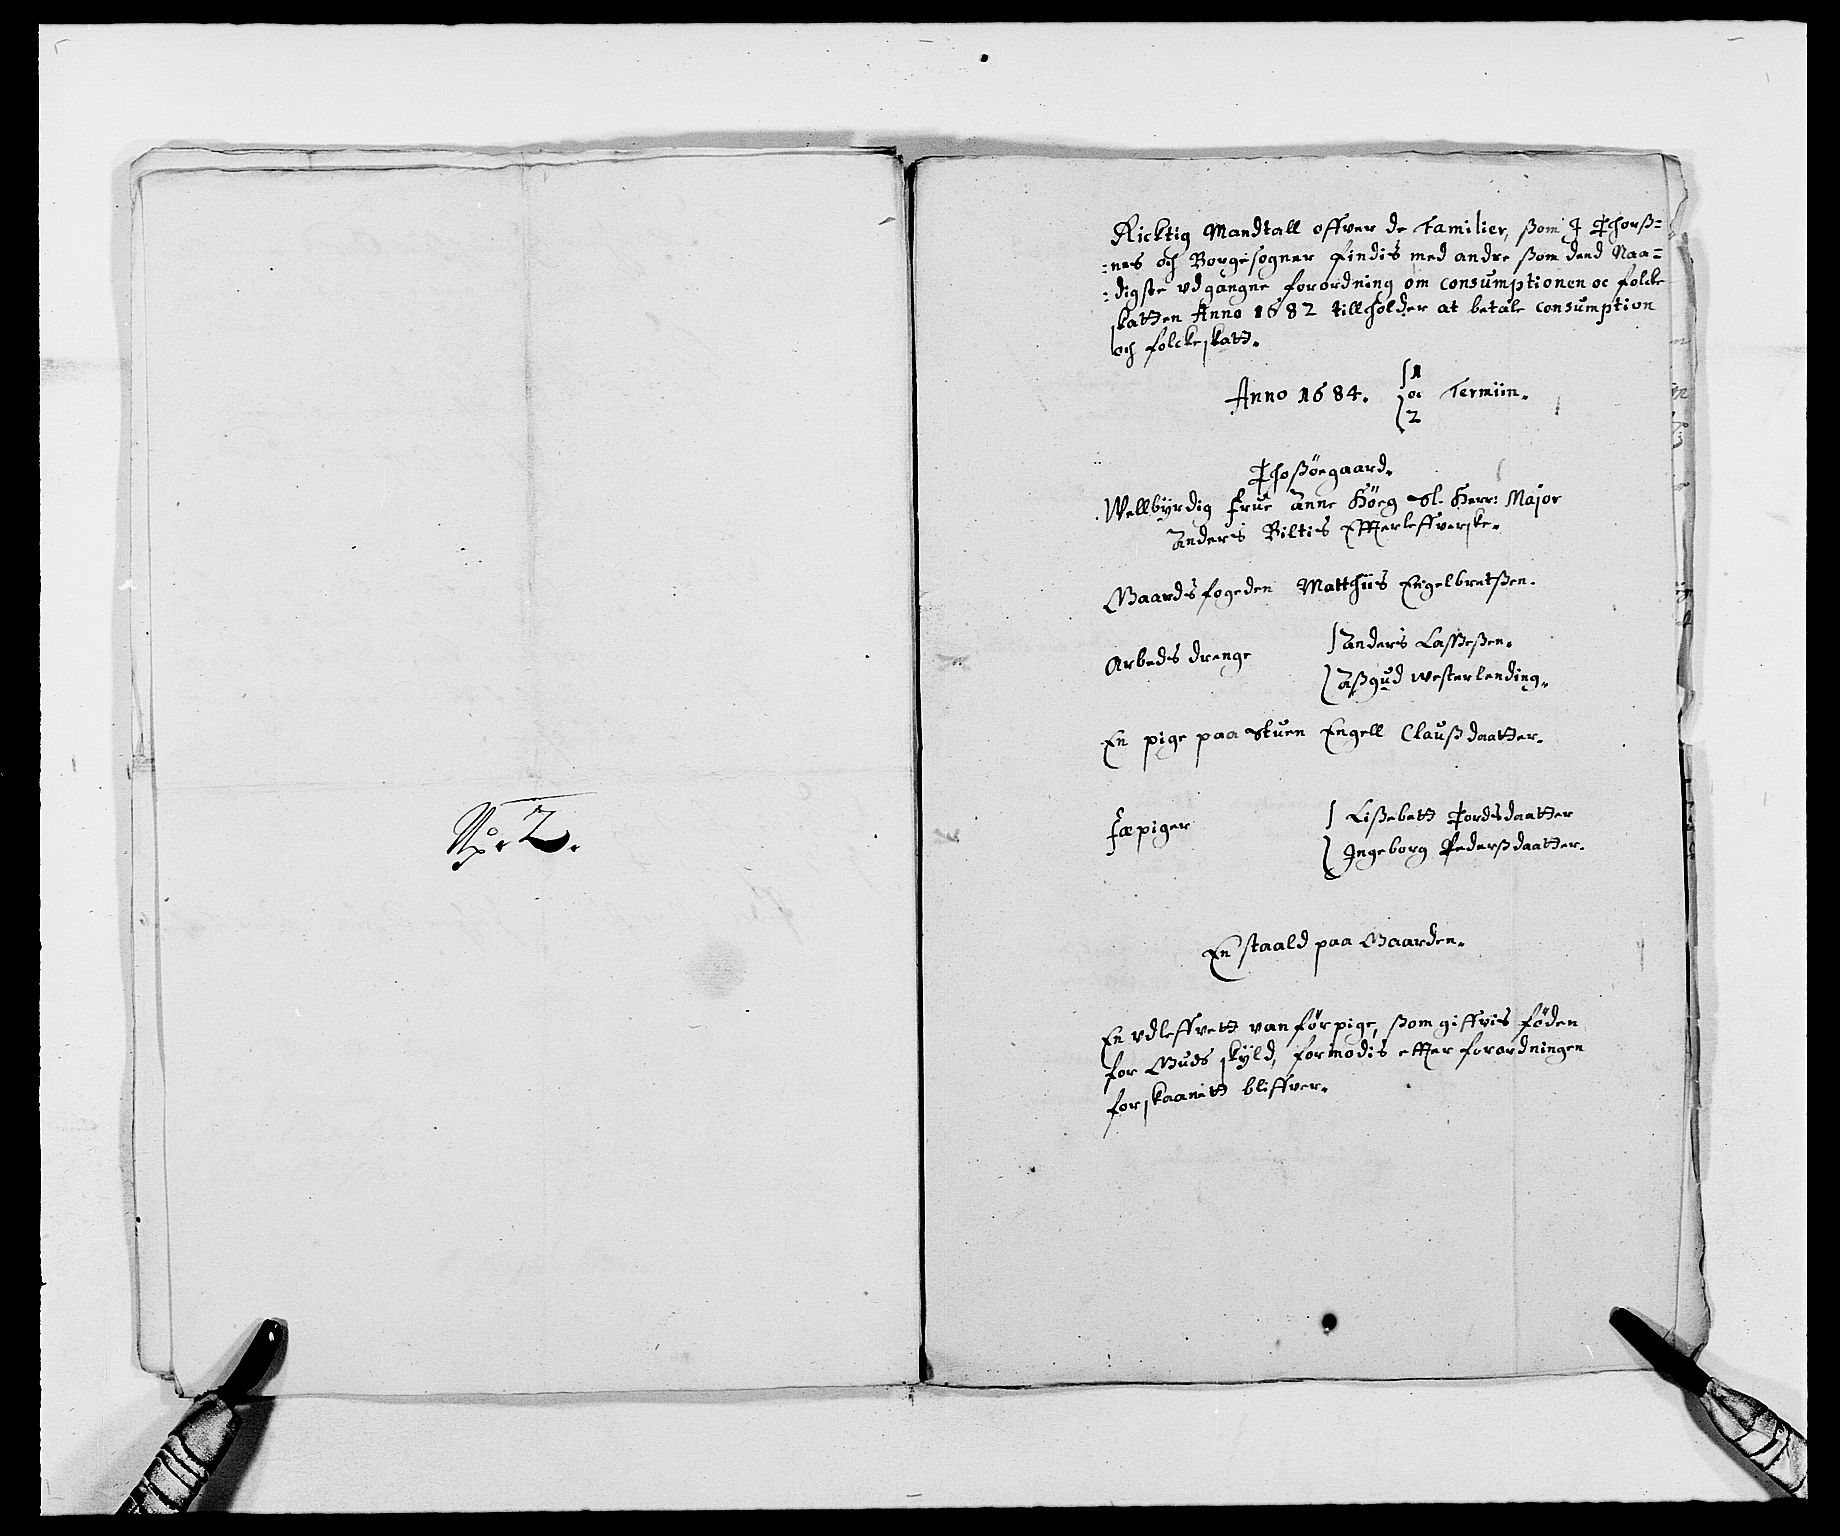 No. 2.
Ricktig Mandtall offver de Familier, ßom J Thorß-
:nes och Borgesogner findis med andre ßom dend Naa-
:digste vdgangne forordning om consumptionen oc folcke
skatten Anno 1682 tillholder at betale consumption
och folckeskatt.
Anno 1684. 1 oc 2 Termiin.
Thoßøegaard.
Wellbyrdig Frue Anne Høeg Sl. Herr: Major
Anders Biltis Effterleffverske.
Gaardsfogeden Matthiis Engelbretßen.
Arbeds drenge Anders Laßeßen.
Aßgud Westerlending.
En pige paa Stuen Engell Claußdaatter.
Fæpiger Lißebett Tordsdaatter
Ingeborg Pederßdaatter.
En staald paa Gaarden.
En vdleffvett vanför pige, ßom giffvis føden
for Guds skyld, formodis effter forordningen
forskaanitt bliffver.